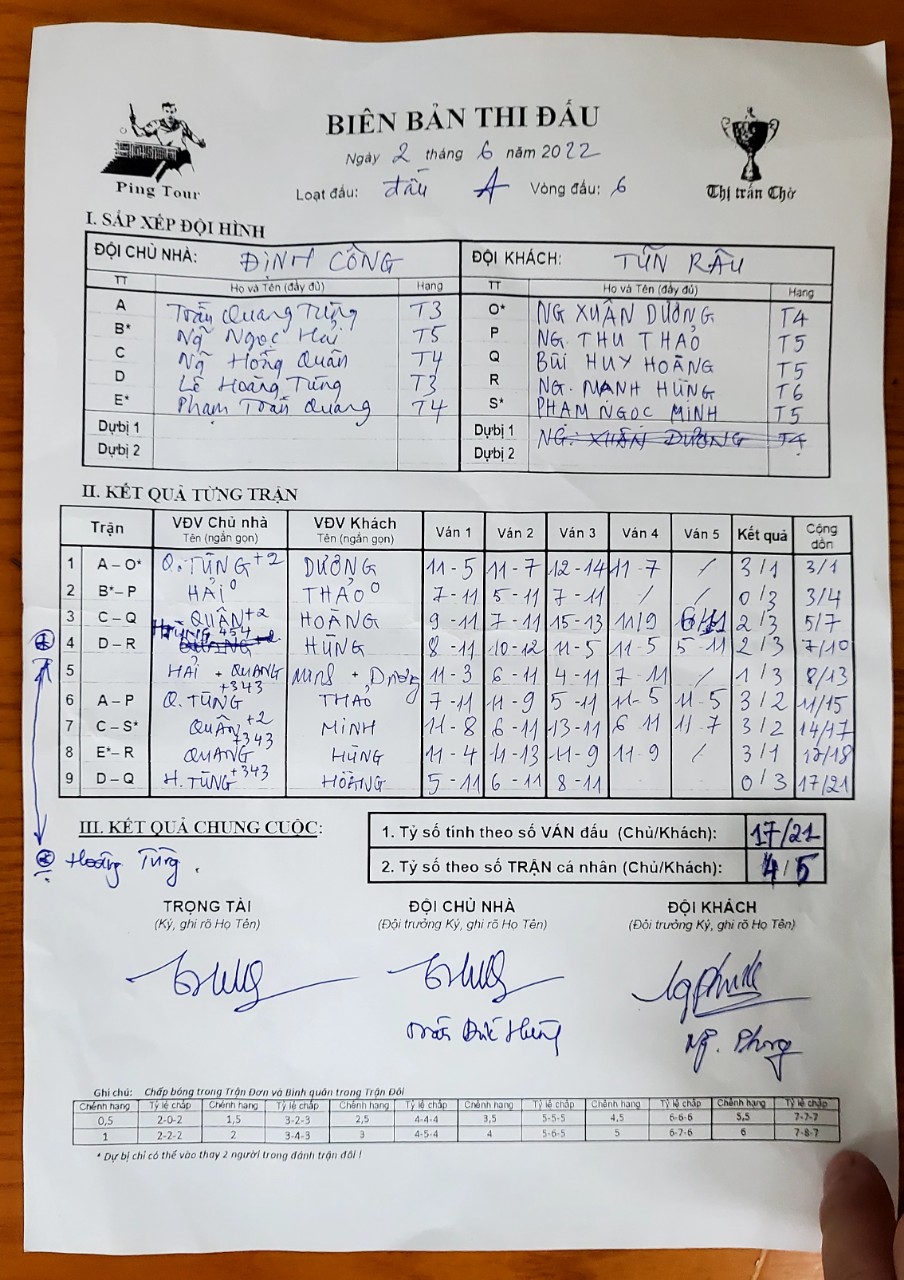 BIÊN BẢN THI ĐẤU
Ngày 2 tháng 6 năm 2022
Ping Tour
Loạt đấu: đấu A Vòng đấu: 6
Thị trấn Chờ
I. SẮP XẾP ĐỘI HÌNH
ĐỘI CHỦ NHÀ: ĐỊNH CÔNG ĐỘI KHÁCH: TÙN RÂU
TT Họ và Tên (đầy đủ) Hạng TT Họ và Tên (đầy đủ) Hạng
A Trần Quang Tùng T3 O* NG XUÂN DƯƠNG T4
B* Ng~ Ngọc Hải T5 P NG THU THẢO T5
C Ng~ Hồng Quân T4 Q BÙI HUY HOÀNG T5
D Lê Hoàng Tùng T3 R NG. MẠNH HÙNG T6
E* Phạm Trần Quang T4 S* PHẠM NGỌC MINH T5
Dự bị 1 Dự bị 1 NG. XUÂN DƯƠNG T4
Dự bị 2 Dự bị 2
II. KẾT QUẢ TỪNG TRẬN
Trận VĐV Chủ nhà VĐV Khách Ván 1 Ván 2 Ván 3 Ván 4 Ván 5 Kết quả Cộng dồn
Tên (ngắn gọn) Tên (ngắn gọn)
1 A – O* Q. TÙNG +2 DƯƠNG 11 - 5 11 - 7 12 - 14 11 - 7 / 3/1 3/1
2 B* – P HẢI 0 THẢO 0 7 - 11 5 - 11 7 - 11 / / 0/3 3/4
3 C – Q QUÂN +2 HOÀNG 9 - 11 7 - 11 15 - 13 11/9 6/11 2/3 5/7
4 D – R HTÙNG 454 HÙNG 8 - 11 10 - 12 11 - 5 11 - 5 5 - 11 2/3 7/10
5 HẢI + QUANG Minh + Dương 11 - 3 6 - 11 4 - 11 7 - 11 / 1/3 8/13
6 A – P Q. TÙNG +343 THẢO 7 - 11 11 - 9 5 - 11 11 - 5 11 - 5 3/2 11/15
7 C – S* QUÂN +2 MINH 11 - 8 6 - 11 13 - 11 6 11 11 - 7 3/2 14/17
8 E* – R QUANG +343 HÙNG 11 - 4 11 - 13 11 - 9 11 - 9 / 3/1 17/18
9 D – Q H. TÙNG +343 HOÀNG 5 - 11 6 - 11 8 - 11 0/3 17/21
III. KẾT QUẢ CHUNG CUỘC:
1. Tỷ số tính theo số VÁN đấu (Chủ/Khách): 17/21
2. Tỷ số theo số TRẬN cá nhân (Chủ/Khách): 4/5
Hoàng Tùng.
TRỌNG TÀI ĐỘI CHỦ NHÀ ĐỘI KHÁCH
(Ký, ghi rõ Họ Tên) (Đội trưởng Ký, ghi rõ Họ Tên) (Đội trưởng Ký, ghi rõ Họ Tên)
Trần Đức Hùng
Ng~. Phong
Ghi chú: Chấp bóng trong Trận Đơn và Bình quân trong Trận Đôi
Chênh hạng Tỷ lệ chấp Chênh hạng Tỷ lệ chấp Chênh hạng Tỷ lệ chấp Chênh hạng Tỷ lệ chấp Chênh hạng Tỷ lệ chấp Chênh hạng Tỷ lệ chấp
0,5 2-0-2 1,5 3-2-3 2,5 4-4-4 3,5 5-5-5 4,5 6-6-6 5,5 7-7-7
1 2-2-2 2 3-4-3 3 4-5-4 4 5-6-5 5 6-7-6 6 7-8-7
* Dự bị chỉ có thể vào thay 2 người trong đánh trận đôi !